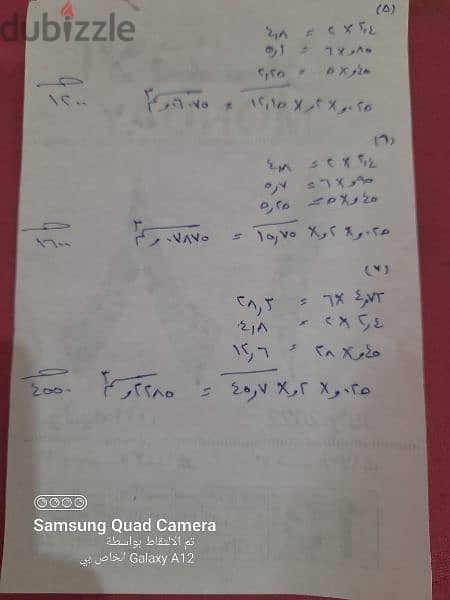 dubizzle
(٥)
٢,٤ × ٢ = ٤,٨
٨٥و × ٦ = ٥,١
٤٥و × ٥ = ٢,٢٥
٠٢٥و × ٢و × ١٢,١٥ = ٠٦٠٧٥و م٣ ١٢٠٠ جـ
(٦)
٢,٤ × ٢ = ٤,٨
٩٥و × ٦ = ٥,٧
٤٥و × ٥ = ٥,٢٥
٠٢٥و × ٢و × ١٥,٧٥ = ٠٧٨٧٥و م٣ ١٦٠٠ جـ
(٧)
٤,٧٢ × ٦ = ٢٨,٣
٢,٤ × ٢ = ٤,٨
٤٥و × ٢٨ = ١٢,٦
٠٢٥و × ٢و × ٤٥,٧ = ٢٢٨٥و م٣
Samsung Quad Camera
تم الالتقاط بواسطة
Galaxy A12 الخاص بي